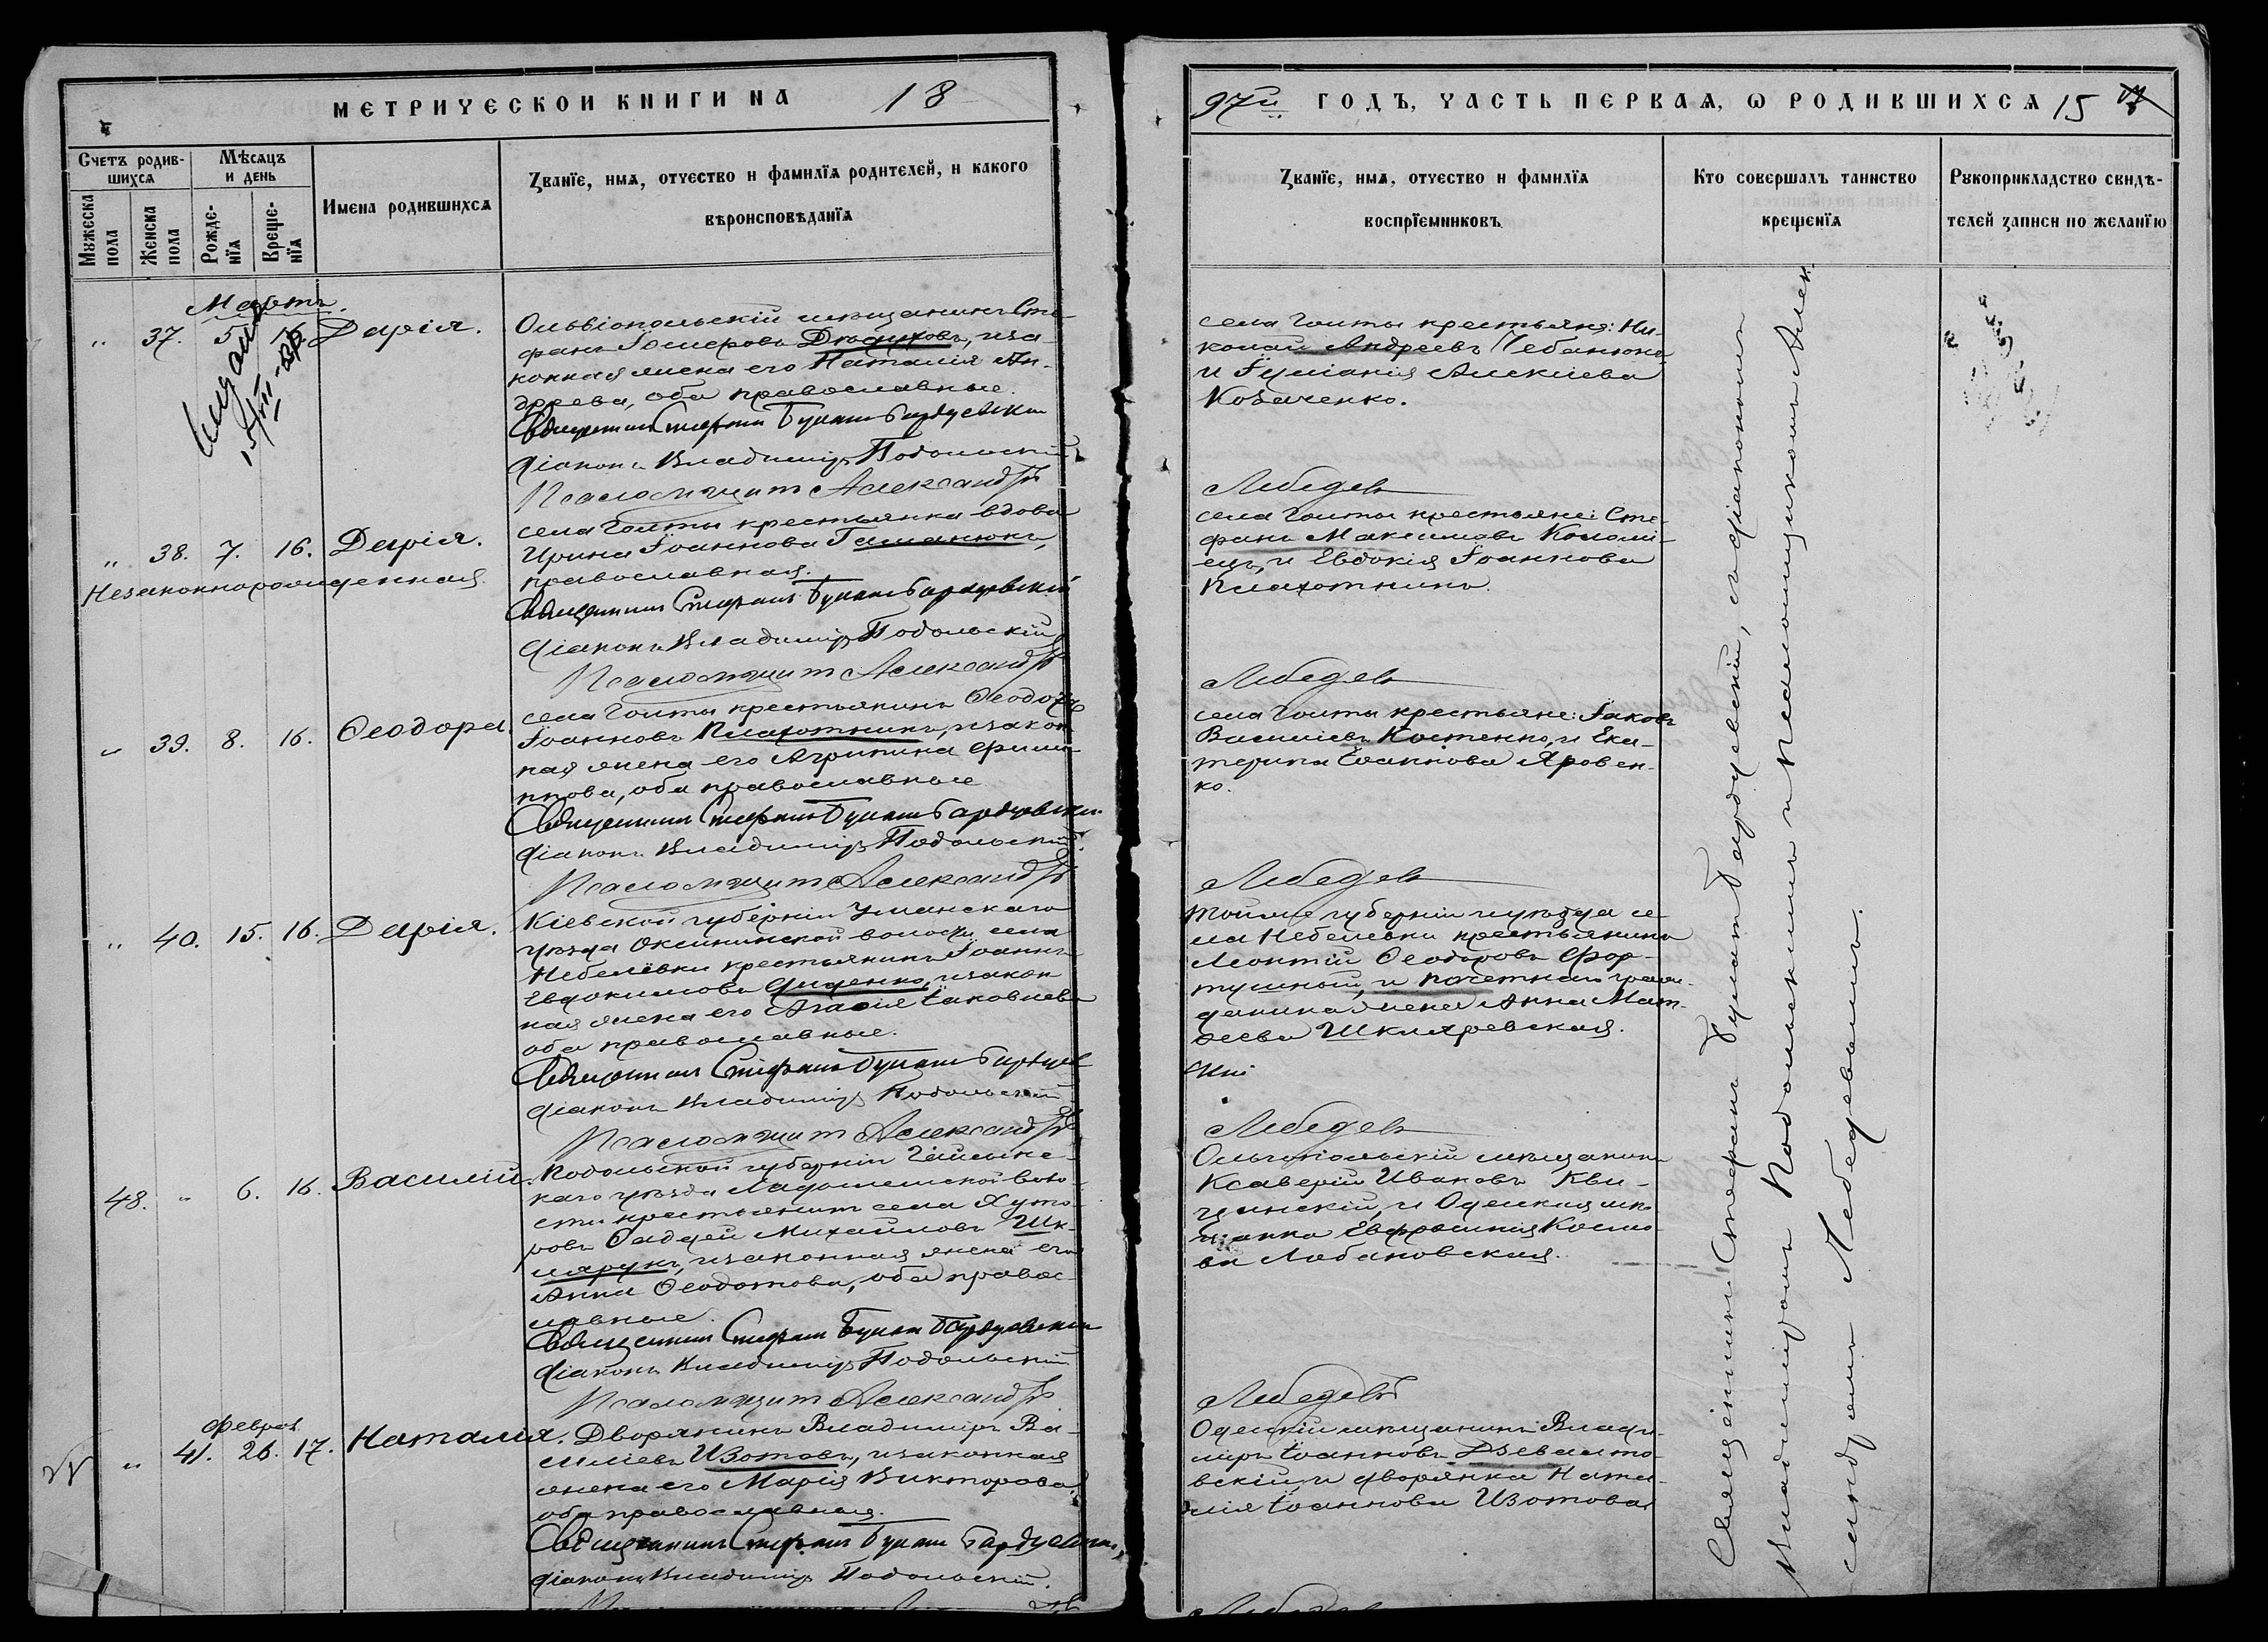 МЕТРИЧЕСКОЙ КНИГИ НА 18
97й ГОДЪ, ЧАСТЬ ПЕРВАЯ, Ѡ РОДИВШИХСЯ 15
Счетъ родив-
шихся
Мѣсяцъ
и день
Мужеска
пола
Женска
пола
Рожде-
нїя
Креще-
нїя
Имена родившихся
Званїе, имя, отчество и фамилїя родителей, и какого
вѣроисповѣданїя
Званїе, имя, отчество и фамилїя
воспрїемниковъ
Кто совершалъ таинство
крещенїя
Рукоприкладство свидѣ-
телей записи по желанїю
Мартъ.
" 37. 5. 16. Дарія.
Ольвіопольскій мѣщанинъ Сте-
фанъ, иза-
конная жена его Наталія Ан-
дреева, оба православные.
Священникъ Стефанъ Булатъ Бардуевскій
Діаконъ Владиміръ Подольскій
Псаломщикъ Александръ
села Голты крестьяне: Ни-
колай Андреевъ Чебанюкъ
и Іуліанія Алексіева
Козаченко.
Лебедевъ
" 38. 7. 16. Дарія.
Незаконнорожденная.
села Голты крестьянка вдова
Ирина Іоаннова Гаманюкъ,
православная.
Священникъ Стефанъ Булатъ Бардуевскій
Діаконъ Владиміръ Подольскій
Псаломщикъ Александръ
села Голты крестьяне: Сте-
фанъ Максимовъ Коломі-
ецъ, и Евдокія Іоаннова
Плахотнина.
Лебедевъ
" 39. 8. 16. Ѳеодора.
села Голты крестьянинъ Ѳеодоръ
Іоанновъ Плахотникъ, изакон
ная жена его Агрипина Фили-
ппова, оба православные
Священникъ Стефанъ Булатъ Бардуевскій
Діаконъ Владиміръ Подольскій.
Псаломщикъ Александръ
села Голты крестьяне: Іаковъ
Василіевъ Костенко, и Ека-
терина Іоаннова Яровен-
ко.
Лебедевъ
" 40. 15. 16. Дарія.
Кіевской губерніи Уманскаго
уѣзда Оксининской волости, села
Небелёвки крестьянинъ Іоаннъ
Евдокимовъ Диденко, изакон
ная жена его Агафія Іаковлева
оба православные.
Священникъ Стефанъ Булатъ Бардуев
Діаконъ Владиміръ Подольскій
Псаломщикъ Александръ
тойже губерніи и уѣзда се-
ла Небелевки крестьянинъ
Леонтій Ѳеодоровъ Фор-
тушный, и почетнаго граж-
данина жена Анна Мат-
ѳеева Шкляревская.
скій
Лебедевъ
48. " 6. 16. Василій.
Подольской губерніи Гайсинс-
каго уѣзда Ладыженской воло-
сти крестьянинъ села Хуто-
ровъ Ѳаддей Михайловъ Шк-
лярукъ, изаконная жена его
Анна Ѳеодотова, оба правос-
лавные.
Священникъ Стефанъ Булатъ Бардуевскій
Діаконъ Владиміръ Подольскій
Псаломщикъ Александръ
Ольгопольскій мѣщанинъ
Ксаверій Ивановъ Кви-
цинскій, и Одесская мѣ-
щанка Евфросинія Косьмо-
ва Лобановская.
Лебедевъ
Феврал
" 41. 26. 17. Наталія.
Дворянинъ Владиміръ Ва-
силіевъ Изотовъ, изаконная
жена его Марія Викторова
оба православныя.
Священникъ Стефанъ Булатъ Бардуевскій,
Діаконъ Владиміръ Подольскій.
Одесскій мѣщанинъ Влади-
міръ Іоанновъ Дзевалто-
вскій, и дворянка Ната-
лія Іоаннова Изотова
Лебедевъ
Священникъ Стефанъ Булатъ Бардуевскій, съ діакономъ
Владиміромъ Подольскимъ и Псаломщикомъ Алек
сандромъ Лебедевымъ.